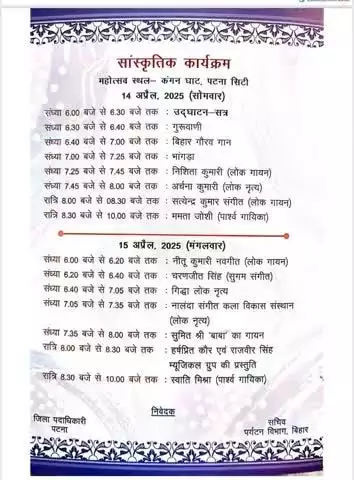 सांस्कृतिक कार्यक्रम
महोत्सव स्थल– कंगन घाट, पटना सिटी
14 अप्रैल, 2025 (सोमवार)
संध्या 6.00 बजे से 6.30 बजे तक : उद्घाटन-सत्र
संध्या 6.30 बजे से 6.40 बजे तक : गुरूवाणी
संध्या 6.40 बजे से 7.00 बजे तक : बिहार गौरव गान
संध्या 7.00 बजे से 7.25 बजे तक : भांगड़ा
संध्या 7.25 बजे से 7.45 बजे तक : निशिता कुमारी (लोक गायन)
संध्या 7.45 बजे से 8.00 बजे तक : अर्चना कुमारी (लोक नृत्य)
रात्रि 8.00 बजे से 08.30 बजे तक : सत्येन्द्र कुमार संगीत (लोक गायन)
रात्रि 8.30 बजे से 10.00 बजे तक : ममता जोशी (पार्श्व गायिका)
15 अप्रैल, 2025 (मंगलवार)
संध्या 6.00 बजे से 6.20 बजे तक : नीतू कुमारी नवगीत (लोक गायन)
संध्या 6.20 बजे से 6.40 बजे तक : चरणजीत सिंह (सुगम संगीत)
संध्या 6.40 बजे से 7.05 बजे तक : गिद्धा लोक नृत्य
संध्या 7.05 बजे से 7.35 बजे तक : नालंदा संगीत कला विकास संस्थान
(लोक नृत्य)
संध्या 7.35 बजे से 8.00 बजे तक : सुमित श्री 'बाबा' का गायन
रात्रि 8.00 बजे से 8.30 बजे तक : हर्षप्रित कौर एवं राजवीर सिंह
म्यूजिकल ग्रुप की प्रस्तुति
रात्रि 8.30 बजे से 10.00 बजे तक : स्वाति मिश्रा (पार्श्व गायिका)
निवेदक
जिला पदाधिकारी
पटना
सचिव
पर्यटन विभाग, बिहार